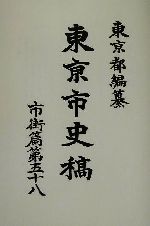 東京都編纂
東京市史稿
市街篇第五十八